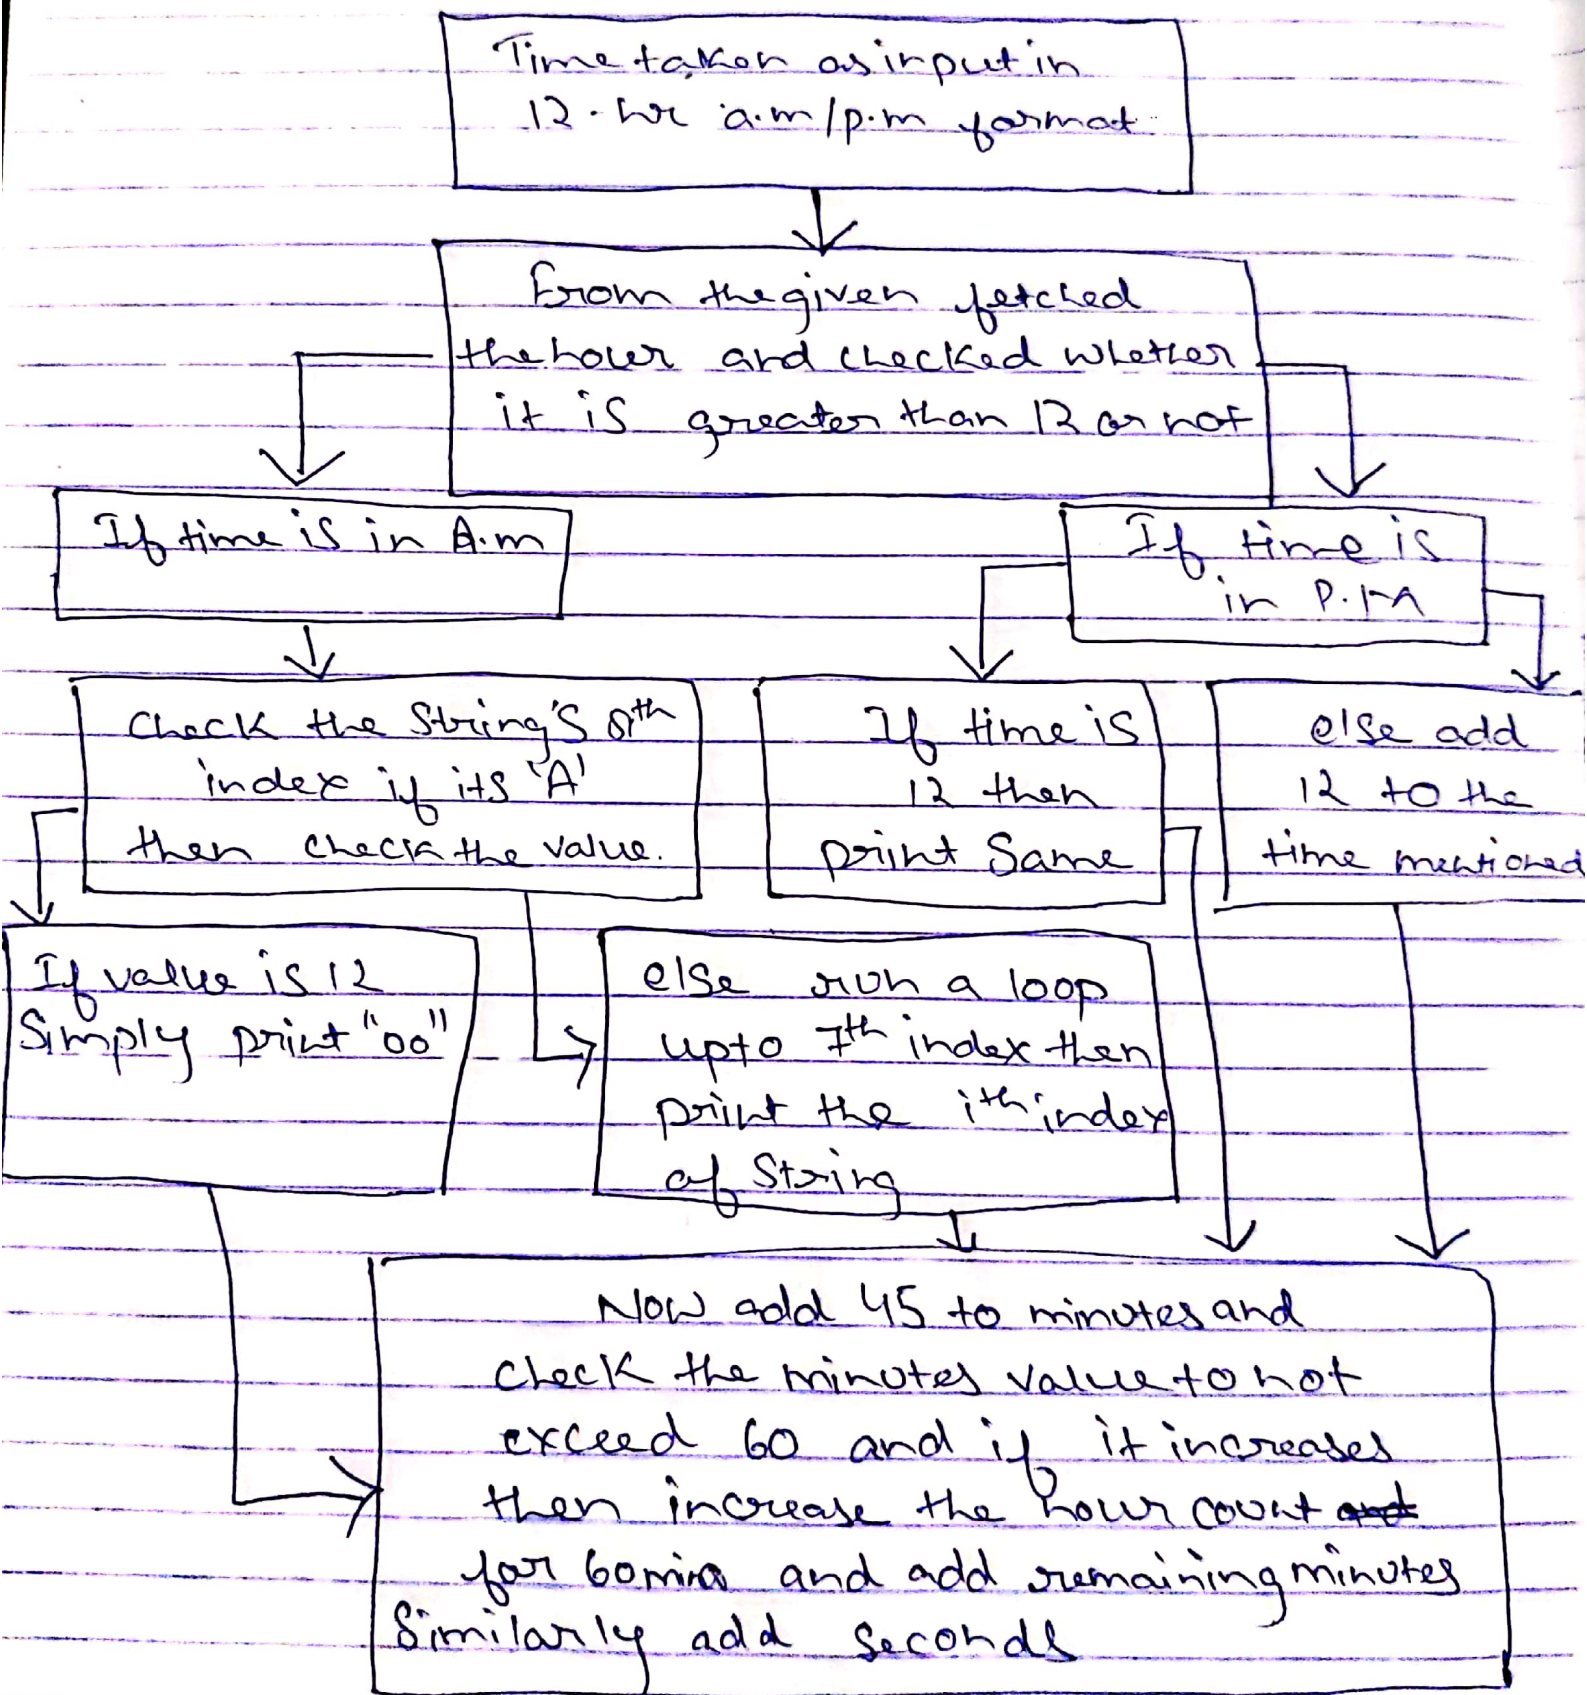 Time taken as input in
12-hr a.m/p.m format
From the given fetched
the hour and checked whether
it is greater than 12 or not
If time is in A.m
If time is
in P.M
Check the String's 8th
index if its 'A'
then check the value.
If time is
12 then
print Same
else add
12 to the
time mentioned
If value is 12
Simply print "00"
else run a loop
upto 7th index then
print the ith index
of String
Now add 45 to minutes and
check the minutes value to not
exceed 60 and if it increases
then increase the hour count
for 60 min and add remaining minutes
Similarly add seconds